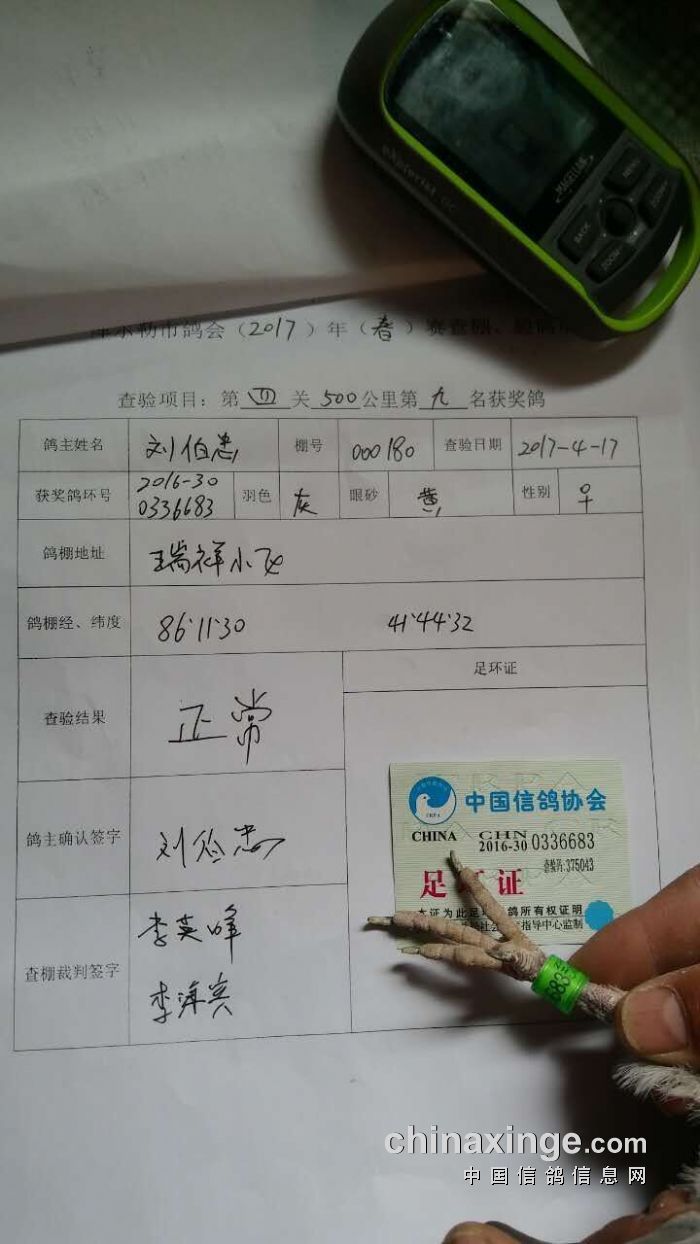 MAGELLAN
eXplorist GC
MENU
BACK
ZOOM-
ZOOM+
尔勒市鸽会（2017）年（春）赛查棚、
查验项目：第 四 关 500 公里第 九 名获奖鸽
鸽主姓名 刘伯忠 棚号 000180 查验日期 2017-4-17
获奖鸽环号 2016-30 0336683 羽色 灰 眼砂 黄 性别 ♀
鸽棚地址 瑞祥小区
鸽棚经、纬度 86°11'30 41°44'32
查验结果 正常
足环证
鸽主确认签字 刘伯忠
查棚裁判签字 李英峰
李
中国信鸽协会
CHINA CHN
2016-30 0336683
查验码:375043
足环证
本证为此足环 鸽所有权证明
社会 指导中心监制
683
chinaxinge.com
中国信鸽信息网